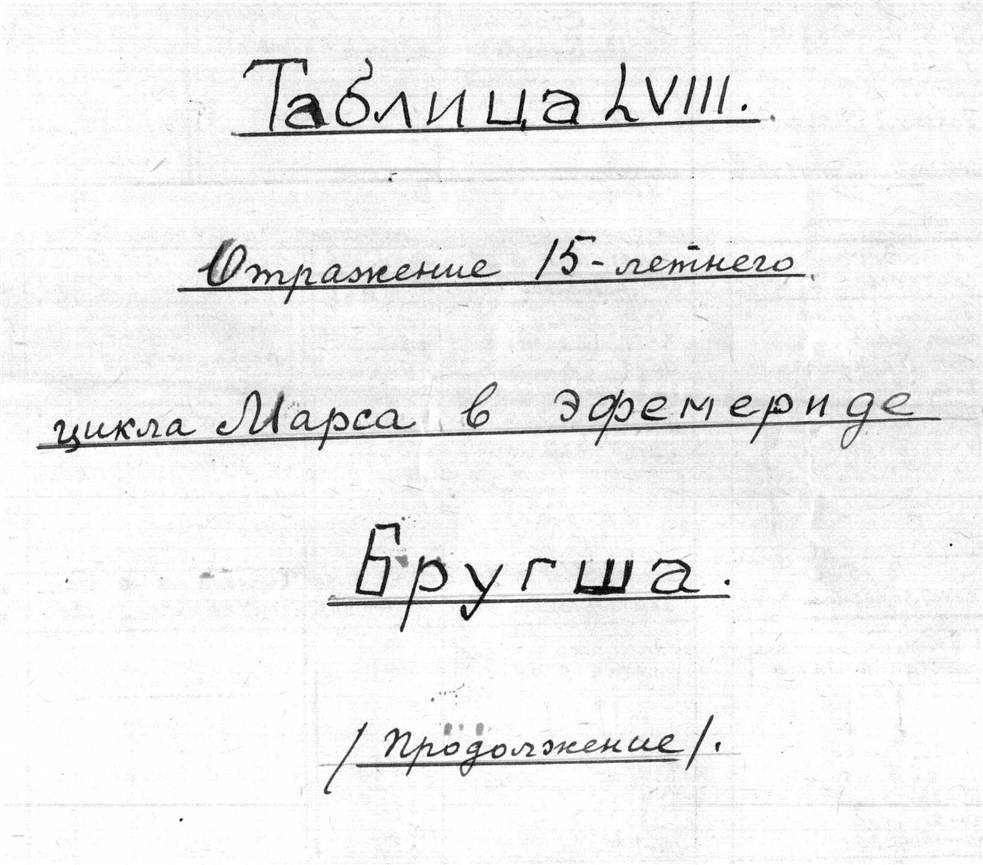 Таблица LVIII.
Отражение 15-летнего
цикла Марса в эфемериде
Бругша.
/Продолжение/.